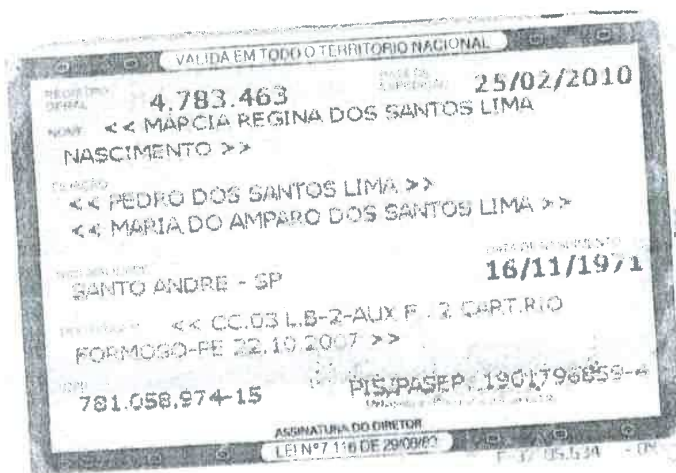 VALIDA EM TODO O TERRITORIO NACIONAL
REGISTRO GERAL 4.783.463 DATA DE EXPEDIÇÃO 25/02/2010
NOME << MARCIA REGINA DOS SANTOS LIMA
NASCIMENTO >>
FILIAÇÃO
<< PEDRO DOS SANTOS LIMA >>
<< MARIA DO AMPARO DOS SANTOS LIMA >>
NATURALIDADE DATA DE NASCIMENTO
SANTO ANDRE - SP 16/11/1971
<< CC.03 L.B-2-AUX F. 2 CART.RIO
FORMOSO-PE 22.10.2007 >>
781.058.974-15 PIS/PASEP. 1901796859-4
ASSINATURA DO DIRETOR
LEI Nº 7.116 DE 29/08/83